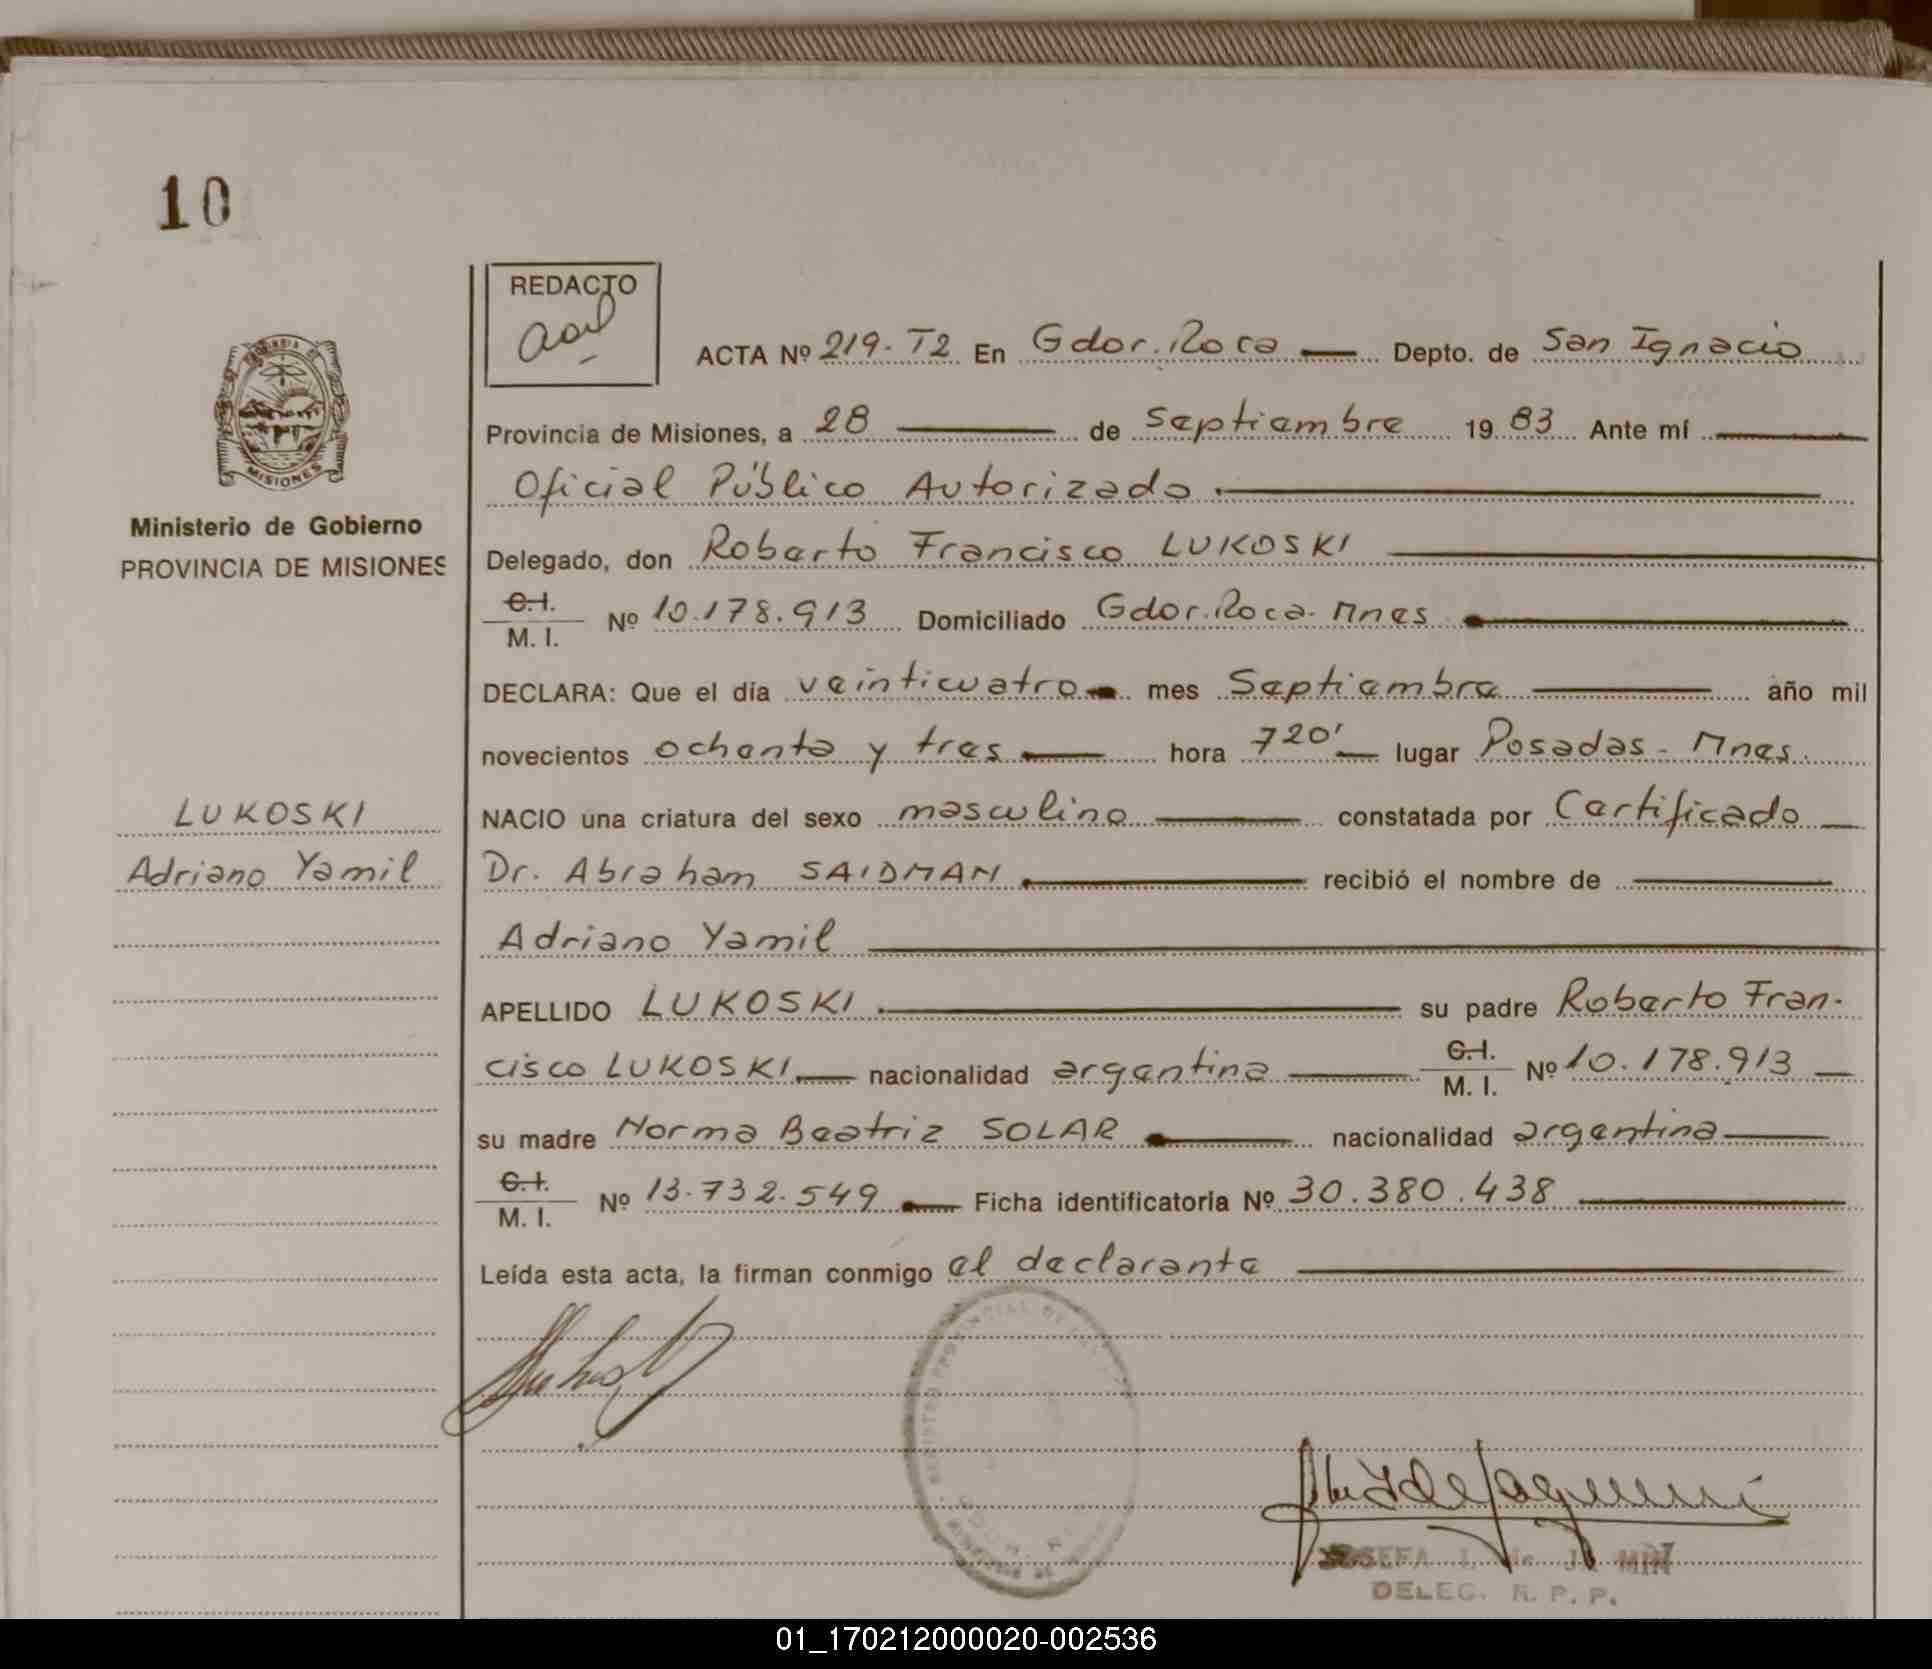 10
REDACTO
ACTA Nº 219-T2 En Gdor. Roca Depto. de San Ignacio
Provincia de Misiones, a 28 de Septiembre 1983 Ante mí
Oficial Público Autorizado
Delegado, don Roberto Francisco LUKOSKI
C.I.
M. I. Nº 10.178.913 Domiciliado Gdor. Roca - Mnes
DECLARA: Que el día veinticuatro mes Septiembre año mil
novecientos ochenta y tres hora 720' lugar Posadas - Mnes.
NACIO una criatura del sexo masculino constatada por Certificado
Dr. Abraham SAIDMAN recibió el nombre de
Adriano Yamil
APELLIDO LUKOSKI su padre Roberto Fran-
cisco LUKOSKI nacionalidad argentina C.I. M. I. Nº 10.178.913
su madre Norma Beatriz SOLAR nacionalidad argentina
C.I.
M. I. Nº 13.732.549 Ficha identificatoria Nº 30.380.438
Leída esta acta, la firman conmigo el declarante
MISIONES
Ministerio de Gobierno
PROVINCIA DE MISIONES
LUKOSKI
Adriano Yamil
JOSEFA I. de
DELEG. R. P. P.
01_170212000020-002536